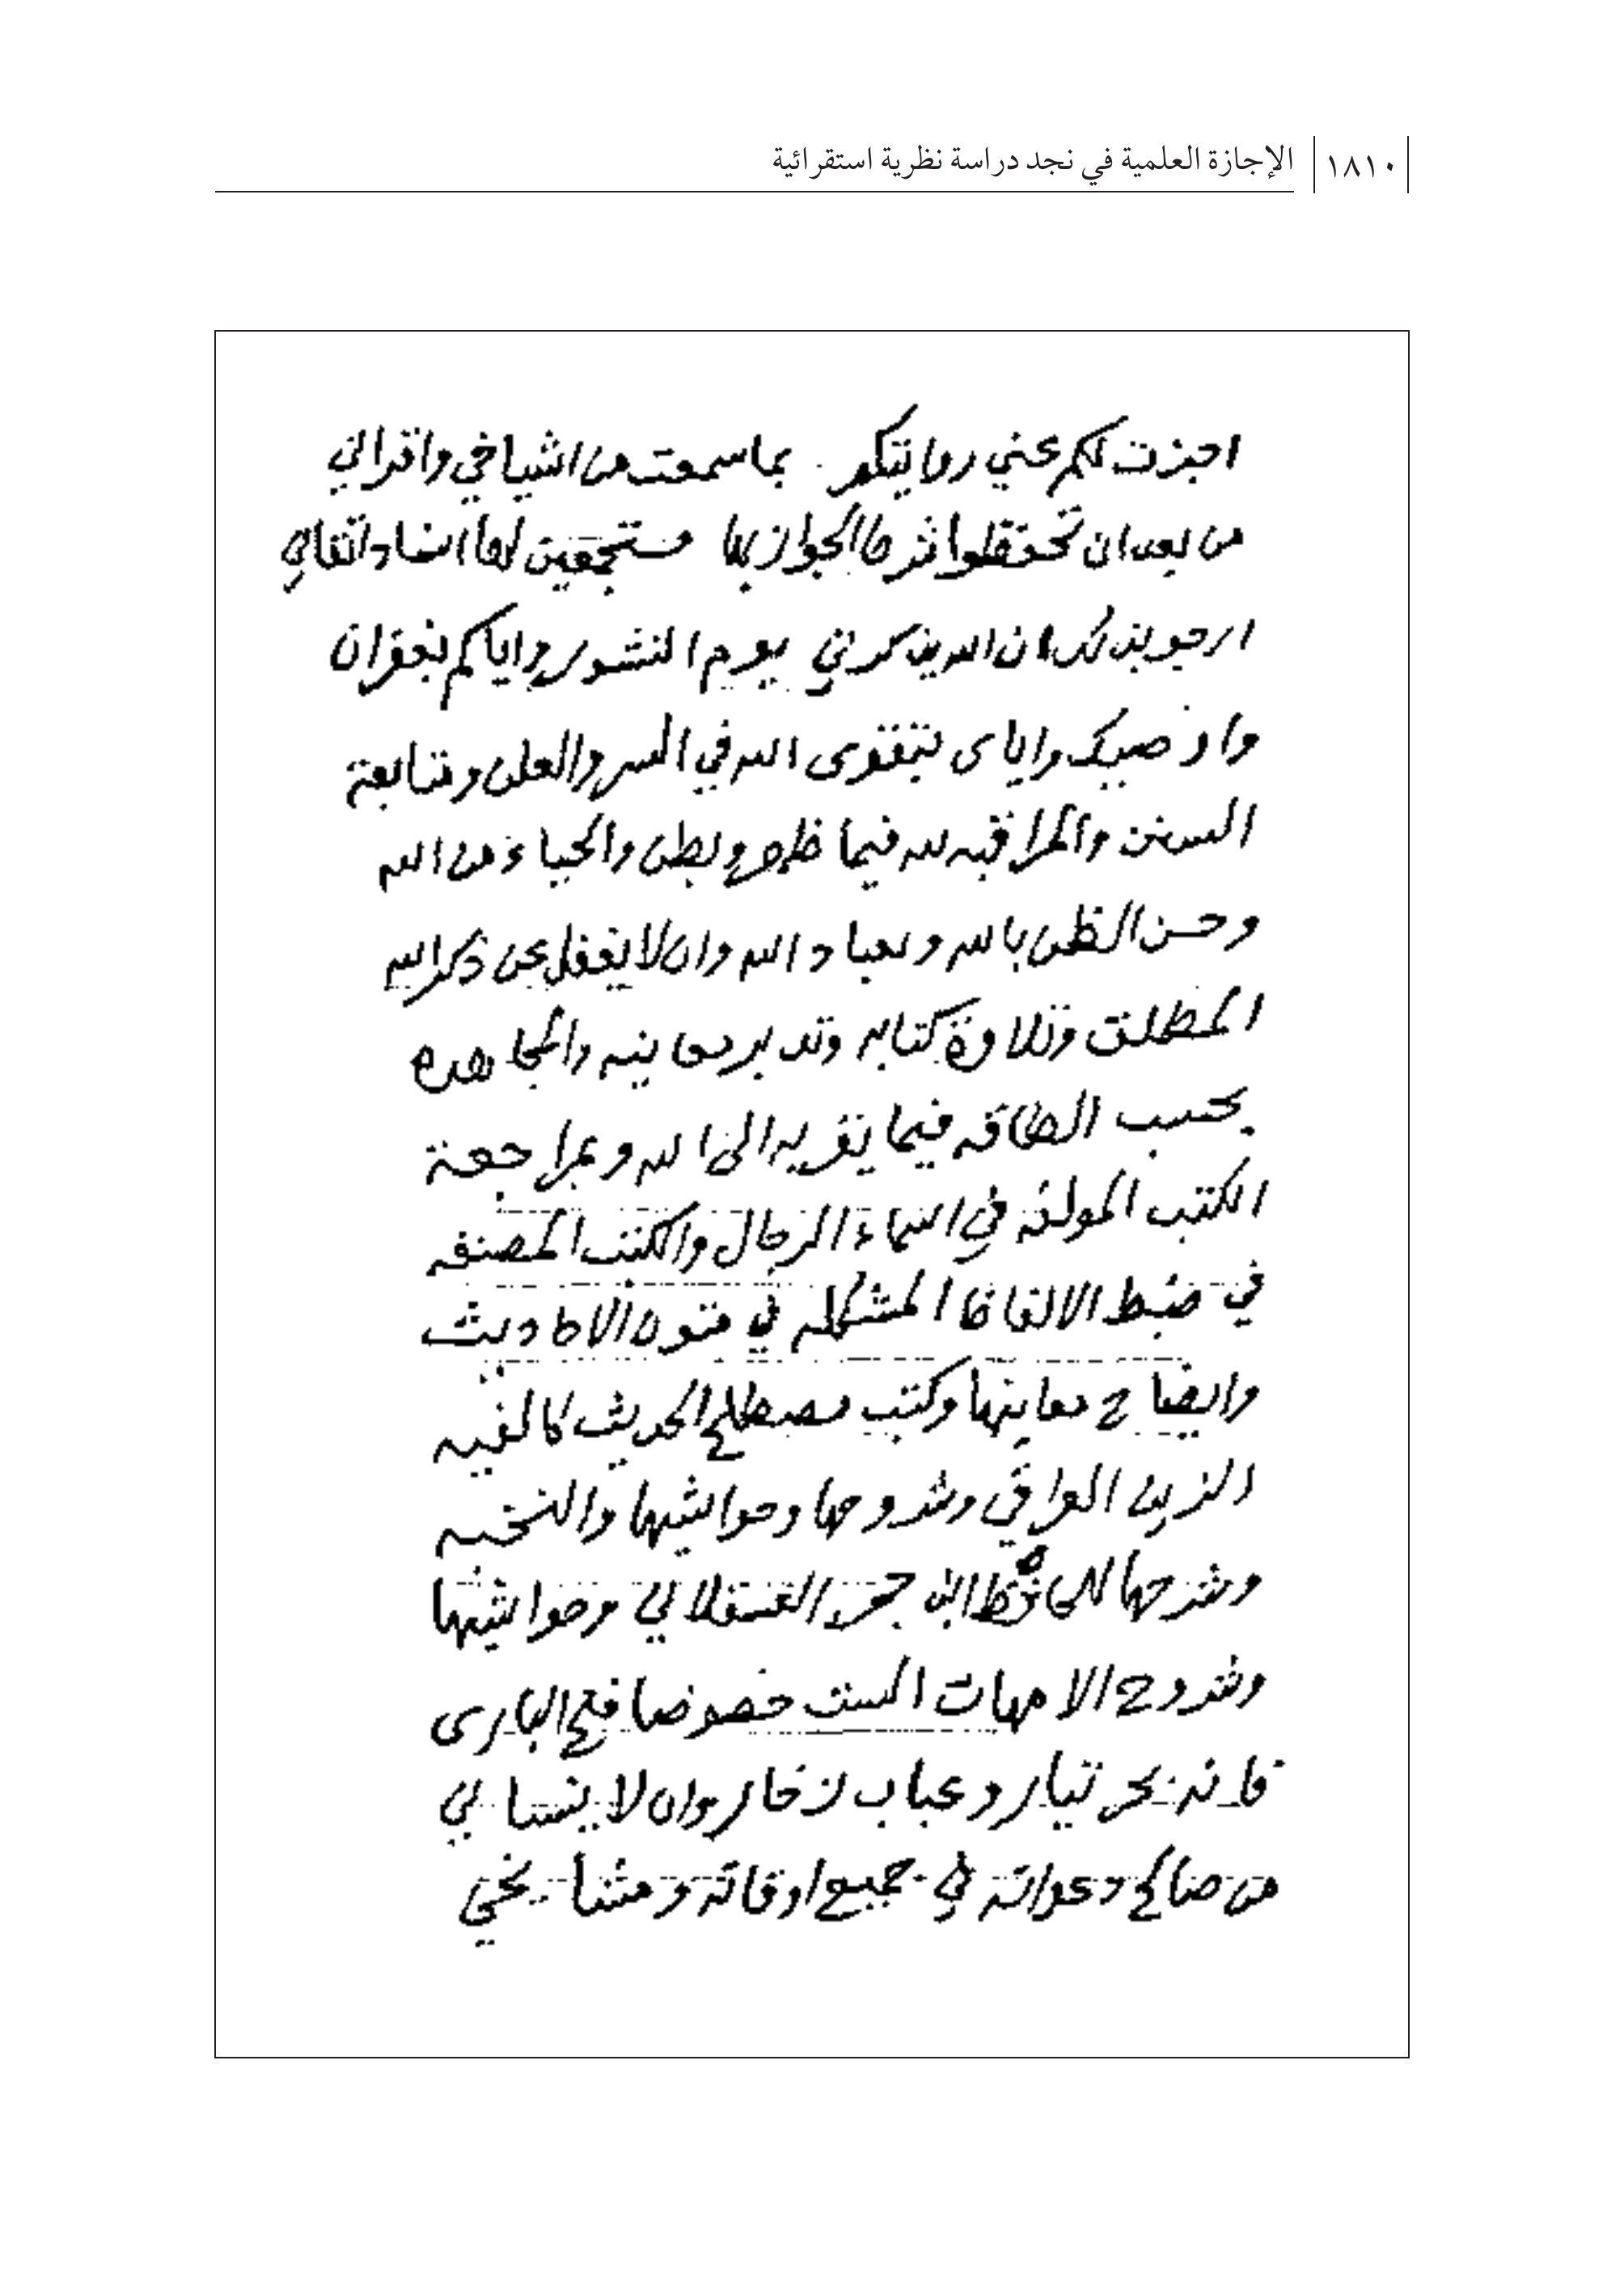 ١٨١٠ الإجازة العلمية في نجد دراسة نظرية استقرائية
اجزت لكم عني روايتكم بما سمعت من اشياخي واقراني
من بعد ان تحفظوا شرط الجواز بها مستجمعين لها اسناد اتقاني
ارجو بذلك ان الله يذكرني يوم النشور واياكم بغفران
واوصيك واياي بتقوى الله في السر والعلن ومتابعة
السنن والمراقبه لله فيما ظهر وبطن والحياء من الله
وحسن الظن بالله وبعباد الله وان لا يغفل عن ذكر الله
المطلق وتلاوة كتابه وتدبر معانيه والمجاهده
بحسب الطاقه فيما يقربه الى الله وبمراجعة
الكتب المولفه في اسماء الرجال والكتب المصنفه
في ضبط الالفاظ المشكله في متون الاحاديث
وايضاح معانيها وكتب مصطلح الحديث كالفيه
الزين العراقي وشروحها وحواشيها والنخبه
وشرحها للحافظ ابن حجر العسقلاني وحواشيها
وشروح الامهات الست خصوصا فتح الباري
فانه بحر تيار وعباب زخار وان لا ينساني
من صالح دعواته في جميع اوقاته ومشايخي